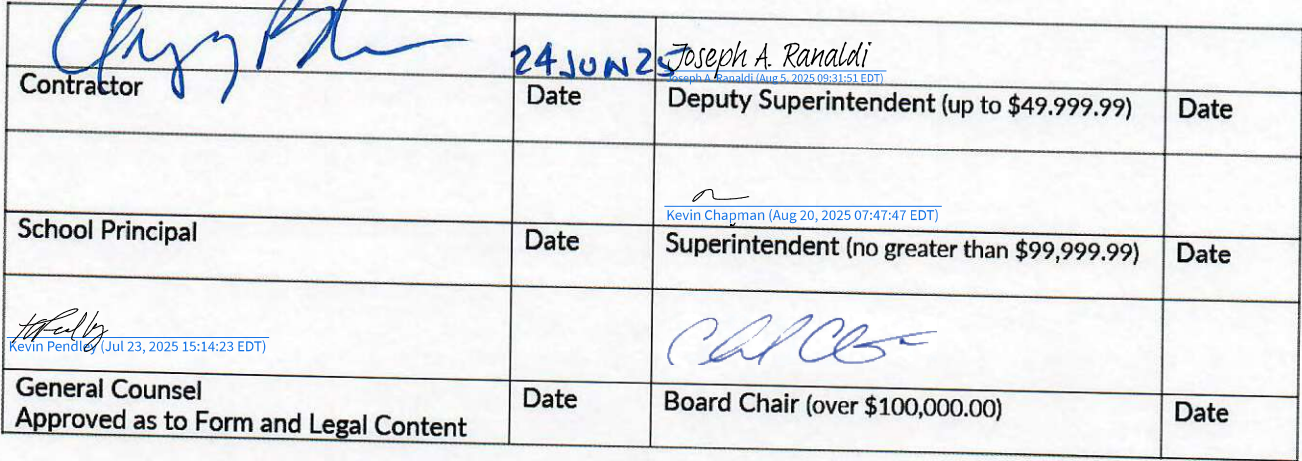 24 JUN 25 Joseph A. Ranaldi
Joseph A. Ranaldi (Aug 5, 2025 09:31:51 EDT)
Contractor Date Deputy Superintendent (up to $49.999.99) Date
Kevin Chapman (Aug 20, 2025 07:47:47 EDT)
School Principal Date Superintendent (no greater than $99,999.99) Date
Kevin Pendley (Jul 23, 2025 15:14:23 EDT)
General Counsel Date Board Chair (over $100,000.00) Date
Approved as to Form and Legal Content